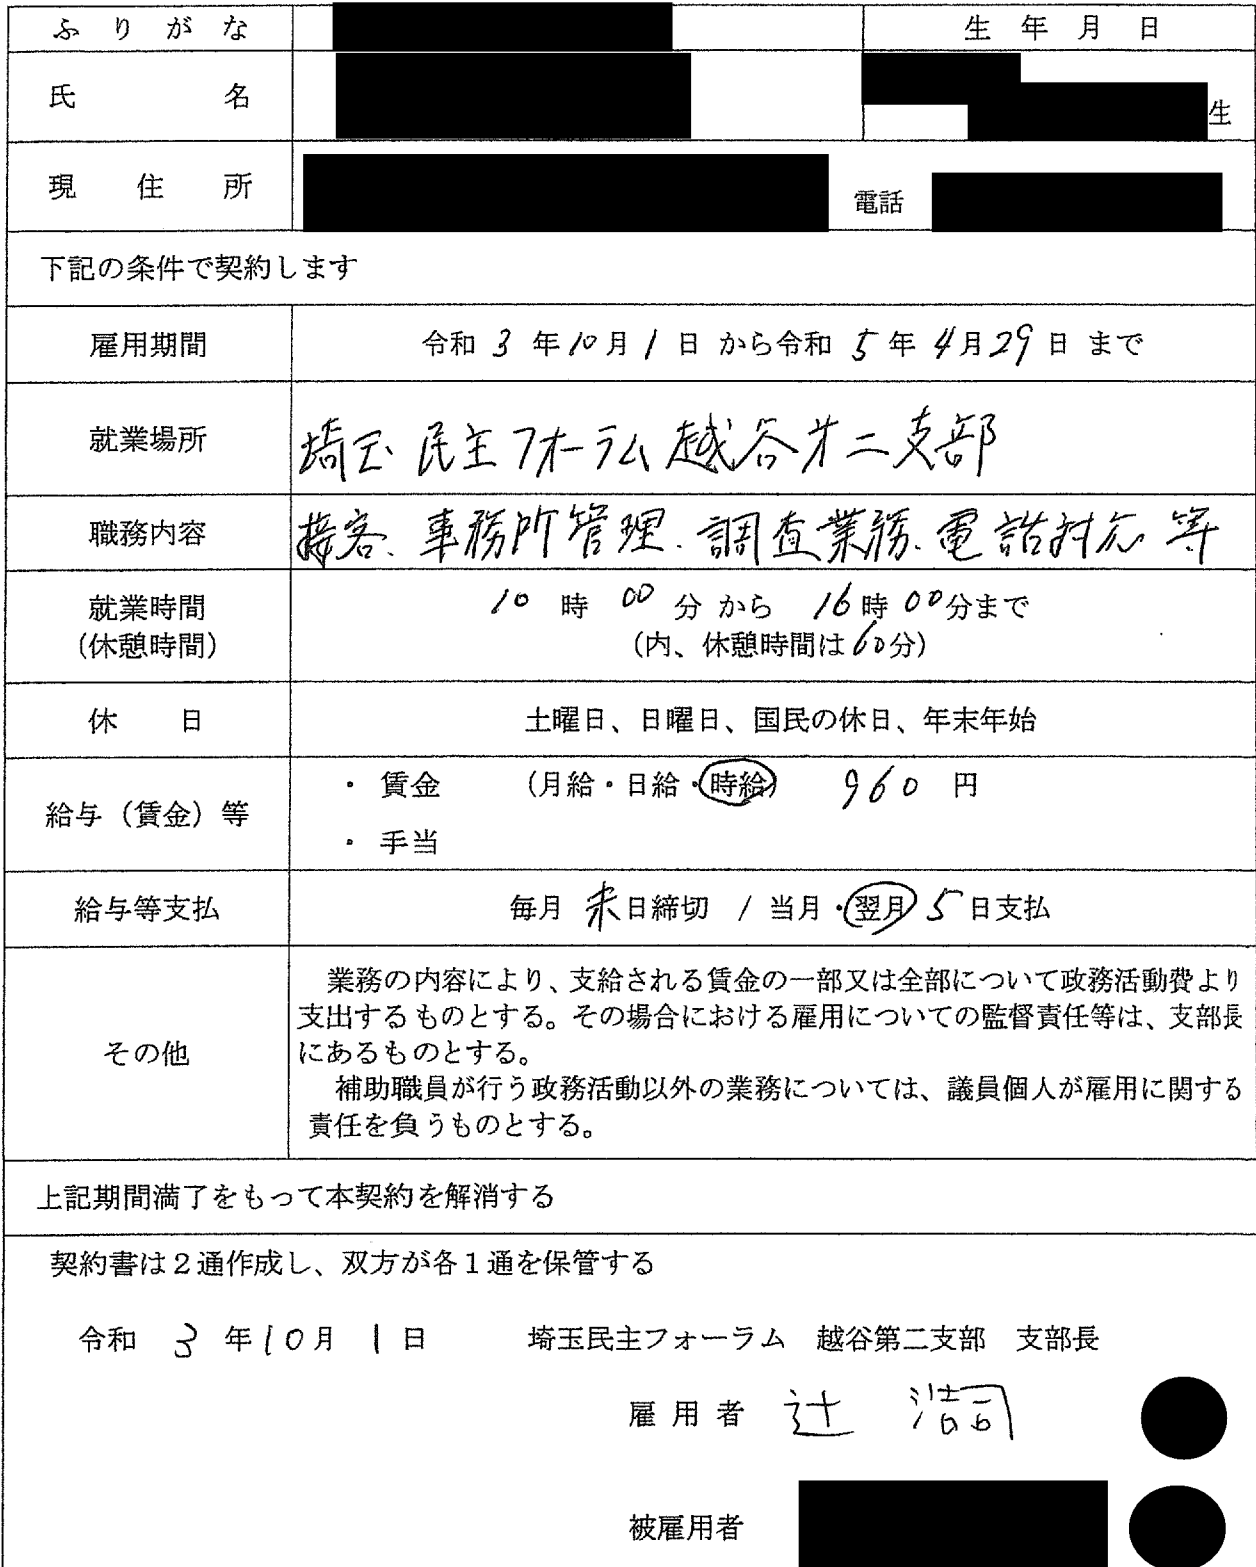 ふりがな 生年月日
氏名 生
現住所 電話
下記の条件で契約します
雇用期間 令和 3 年 10 月 1 日 から令和 5 年 4 月 29 日 まで
就業場所 埼玉民主フォーラム越谷才二支部
職務内容 接客、事務所管理、調査業務、電話対応 等
就業時間 10 時 00 分 から 16 時 00 分まで
(休憩時間) (内、休憩時間は 60 分)
休日 土曜日、日曜日、国民の休日、年末年始
給与（賃金）等 ・ 賃金 (月給・日給・時給) 960 円
・ 手当
給与等支払 毎月 末 日締切 / 当月・翌月 5 日支払
業務の内容により、支給される賃金の一部又は全部について政務活動費より
支出するものとする。その場合における雇用についての監督責任等は、支部長
その他 にあるものとする。
補助職員が行う政務活動以外の業務については、議員個人が雇用に関する
責任を負うものとする。
上記期間満了をもって本契約を解消する
契約書は２通作成し、双方が各１通を保管する
令和 3 年 10 月 1 日 埼玉民主フォーラム 越谷第二支部 支部長
雇用者 辻 浩司
被雇用者